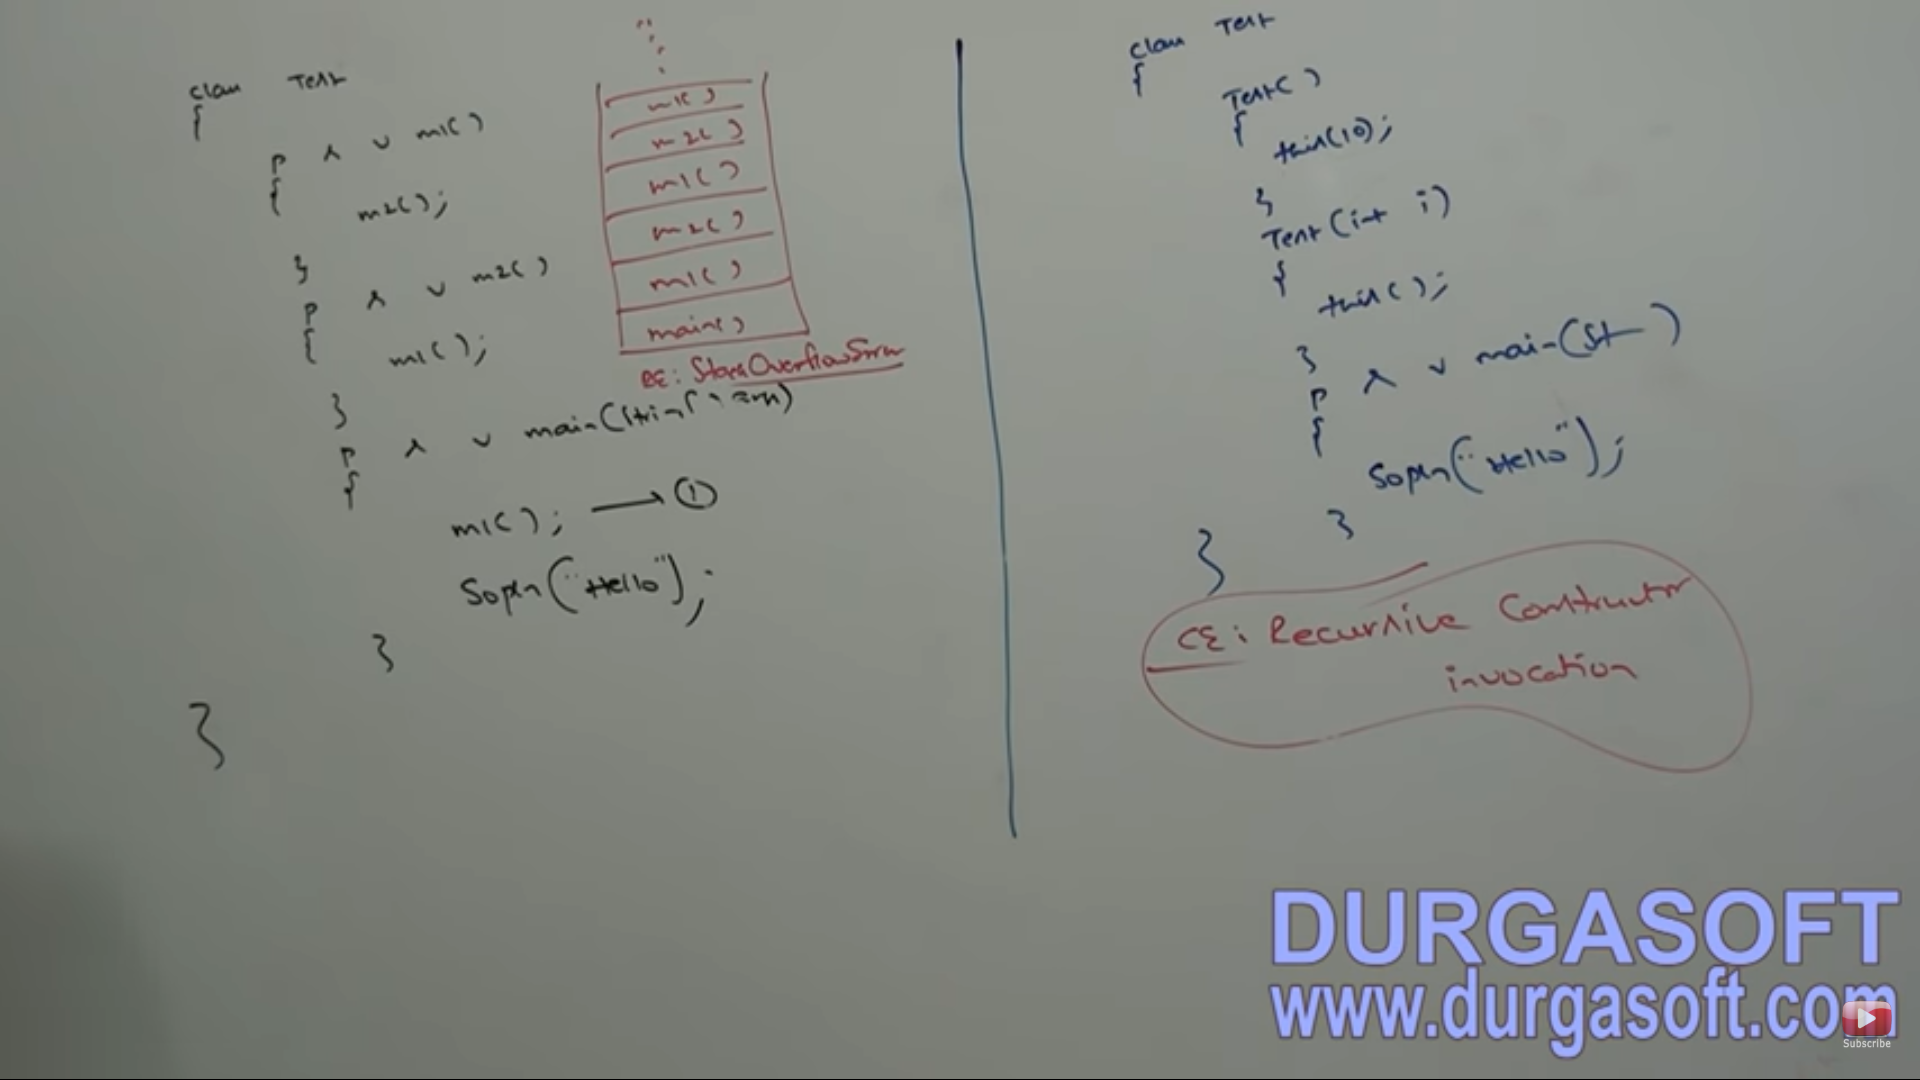 class Test
{
p s v m1()
{
m2();
}
p s v m2()
{
m1();
}
p s v main(String[] args)
{
m1(); → ①
Sopln("Hello");
}
}
m1()
m2()
m1()
m2()
m1()
main()
RE: StackOverflowError
class Test
{
Test()
{
this(10);
}
Test(int i)
{
this();
}
p s v main(St )
{
Sopln("Hello");
}
}
CE: Recursive Constructor
invocation
DURGASOFT
www.durgasoft.com
Subscribe